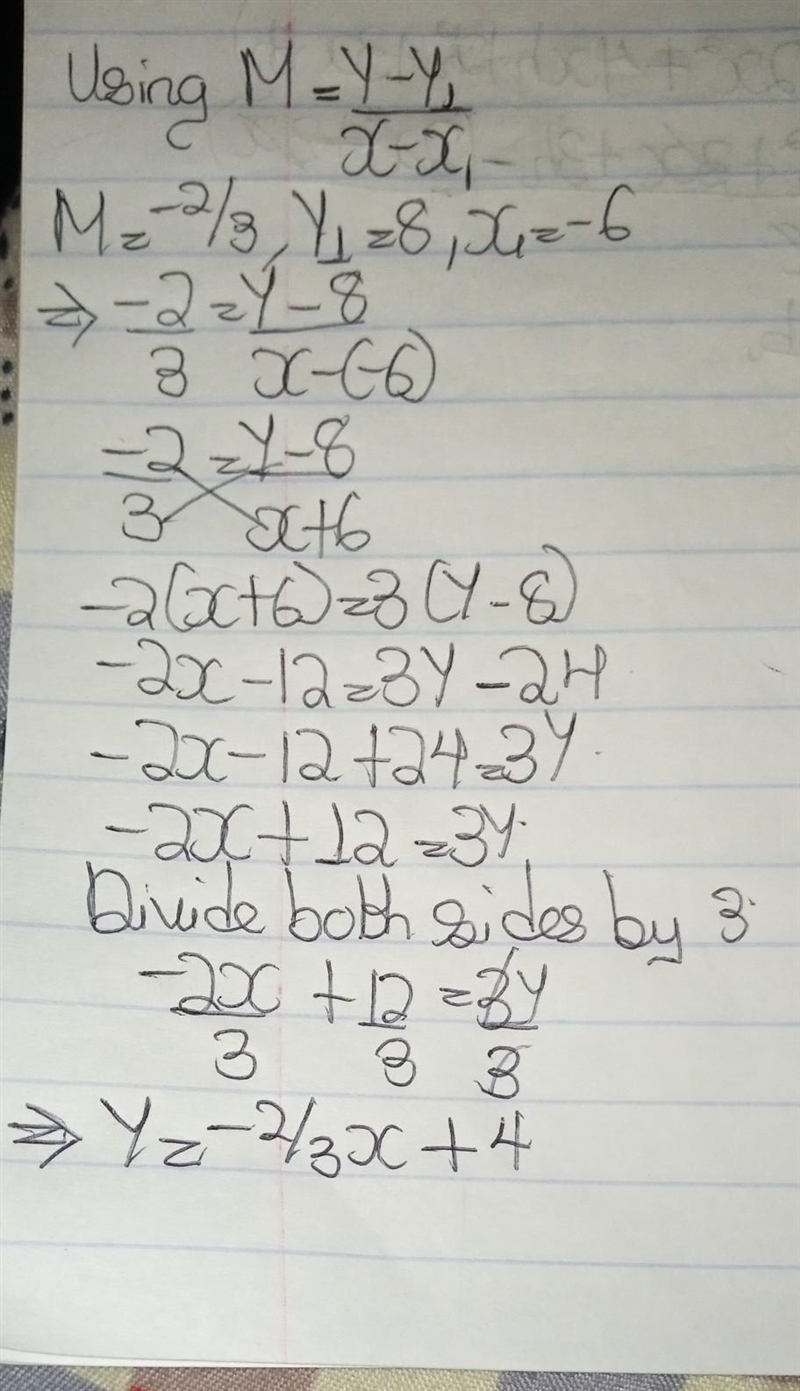 Using M = Y-Y₁
x-x₁
M = -2/3, Y₁ = 8, x₁ = -6
⇒ -2 = Y-8
3 x-(-6)
-2 = Y-8
3 x+6
-2(x+6) = 3(Y-8)
-2x-12 = 3Y-24
-2x-12+24 = 3Y
-2x+12 = 3Y
Divide both sides by 3
-2x + 12 = 3Y
3 3 3
⇒ Y = -2/3x + 4